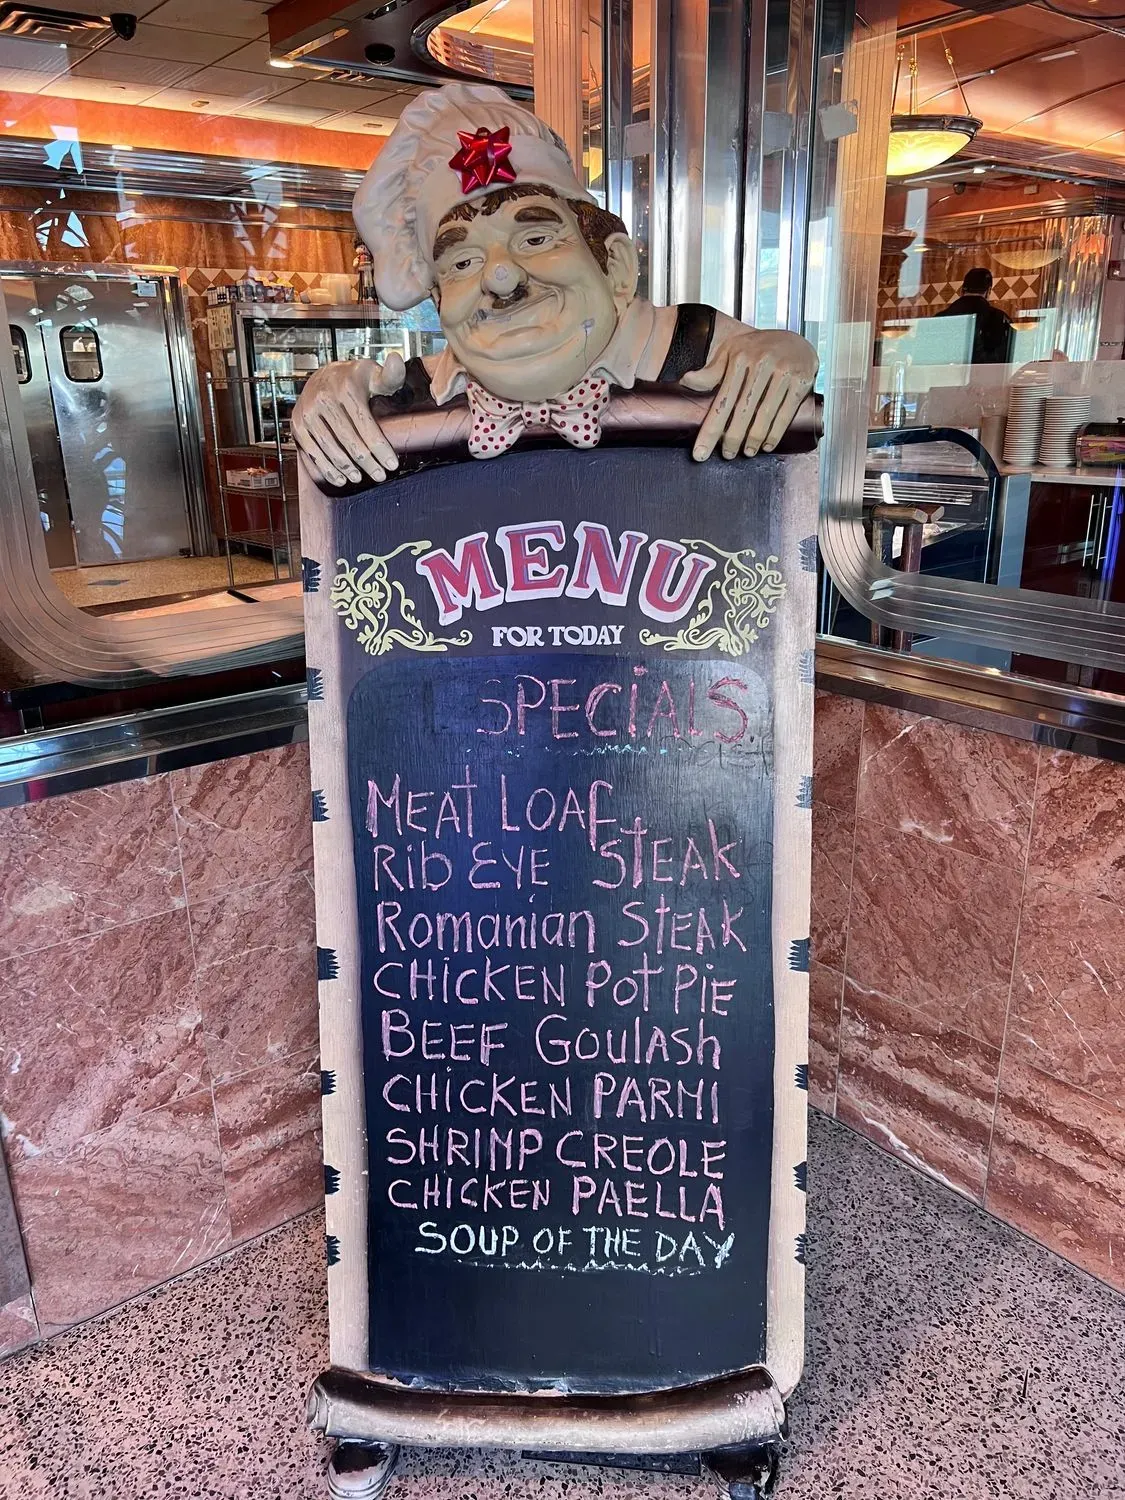 MENU
FOR TODAY
SPECiALS
MEAT LOAF
Rib EYE STEAK
Romanian STEAK
CHiCKEN Pot PiE
BEEF Goulash
CHiCKEN PARMI
SHRIMP CREOLE
CHICKEN PAELLA
SOUP OF THE DAY